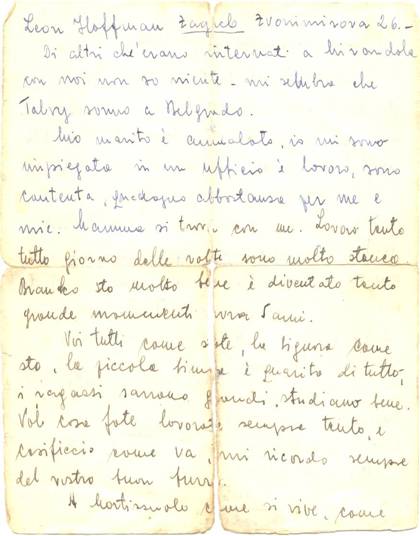 Leon Hoffman Zagreb Zvonimirova 26.-
Di altri ch'erano internati a Mirandola
con noi non so niente - mi sembra che
Talvy sonno a Belgrado.
Mio marito è ammalato, io mi sono
impiegata in un ufficio è lavoro, sono
contenta, guadagno abbastanza per me e
mie. Mamma si trova con me. Lavoro tanto
tutto giorno delle volte sono molto stanca.
Branko sto molto bene è diventato tanto
grande momenenti 5 anni.
Voi tutti come state, la Signora come
sto, la piccola è guarito di tutto,
i ragassi saranno grandi, studiano bene.
Voi cosa fate lavorate sempre tanto, e
casificcio come va, mi ricordo sempre
del vostro buon burro.
A Mortizzuolo come si vive, come